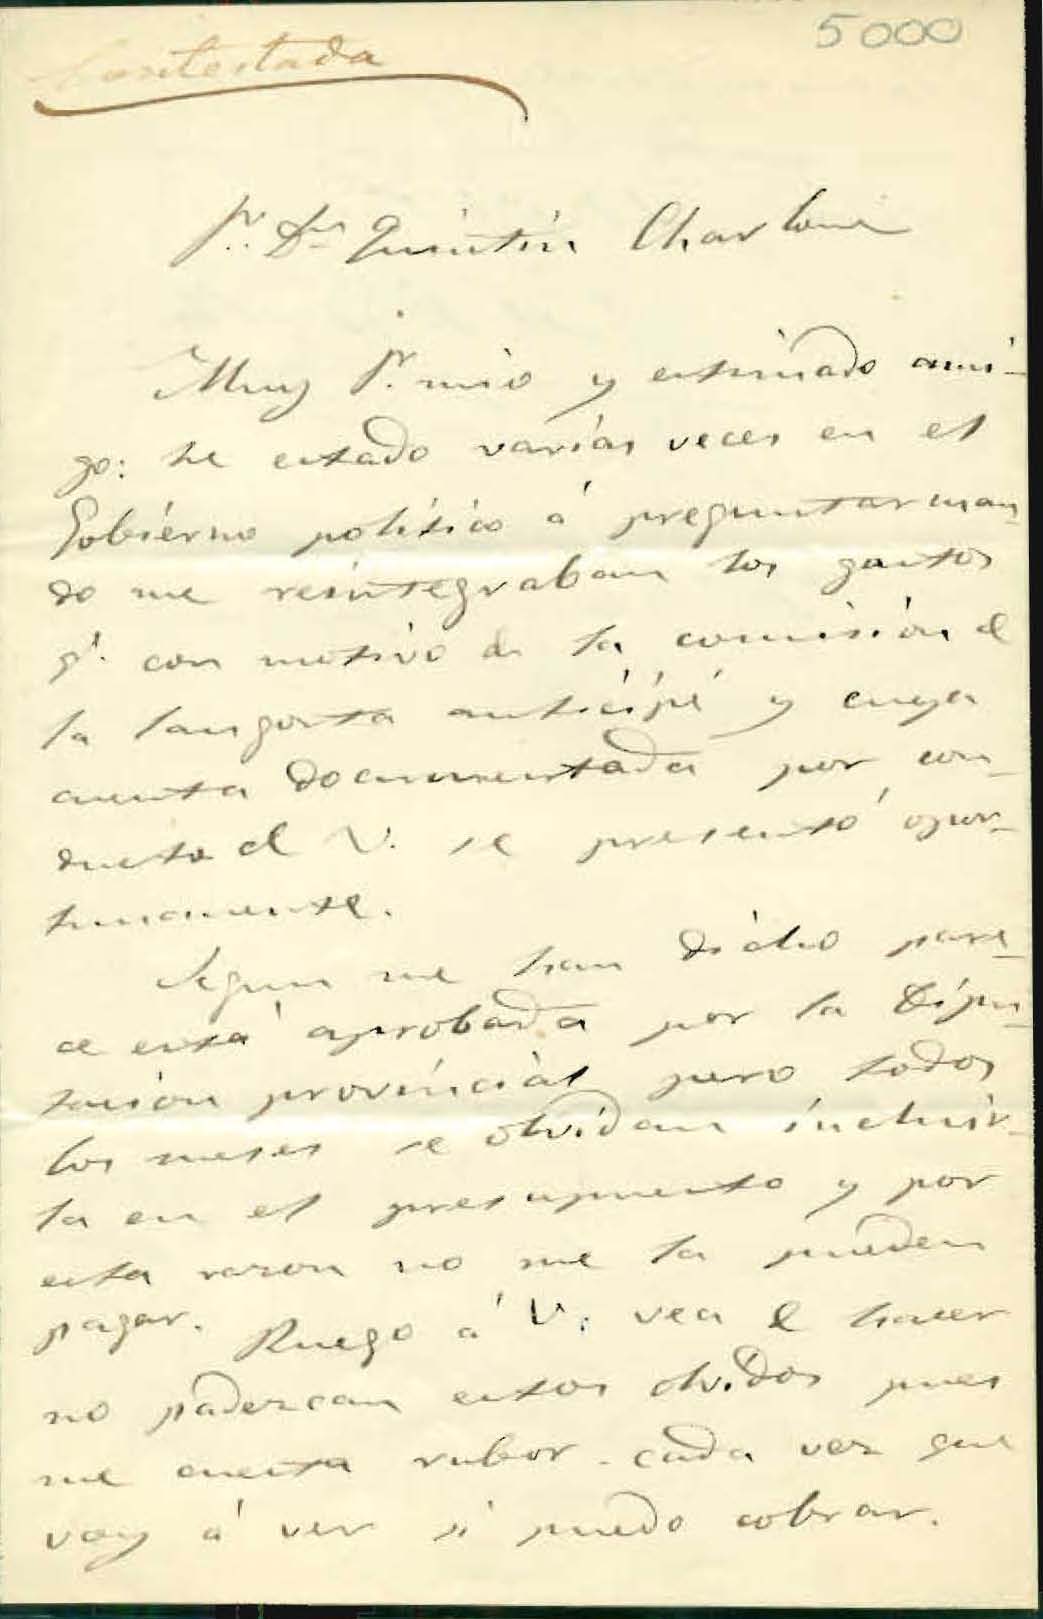 Contestada
5000
Sr. Dn Quintin Charlone
Muy Sr. mio y estimado ami-
go: he estado varias veces en el
Gobierno politico á preguntar cuan-
do me reintegraban los gastos
q. con motivo de la comision de
la langosta anticipé y cuya
cuenta documentada por con-
ducto de V. se presentó opor-
tunamente.
Segun me han dicho pare-
ce está aprobada por la Dipu-
tacion provincial pero todos
los meses se olvidan incluir-
la en el presupuesto y por
esta razon no me la pueden
pagar. Ruego á V. vea de hacer
no padezcan estos olvidos pues
me cuesta rubor cada vez que
voy á ver si puedo cobrar.